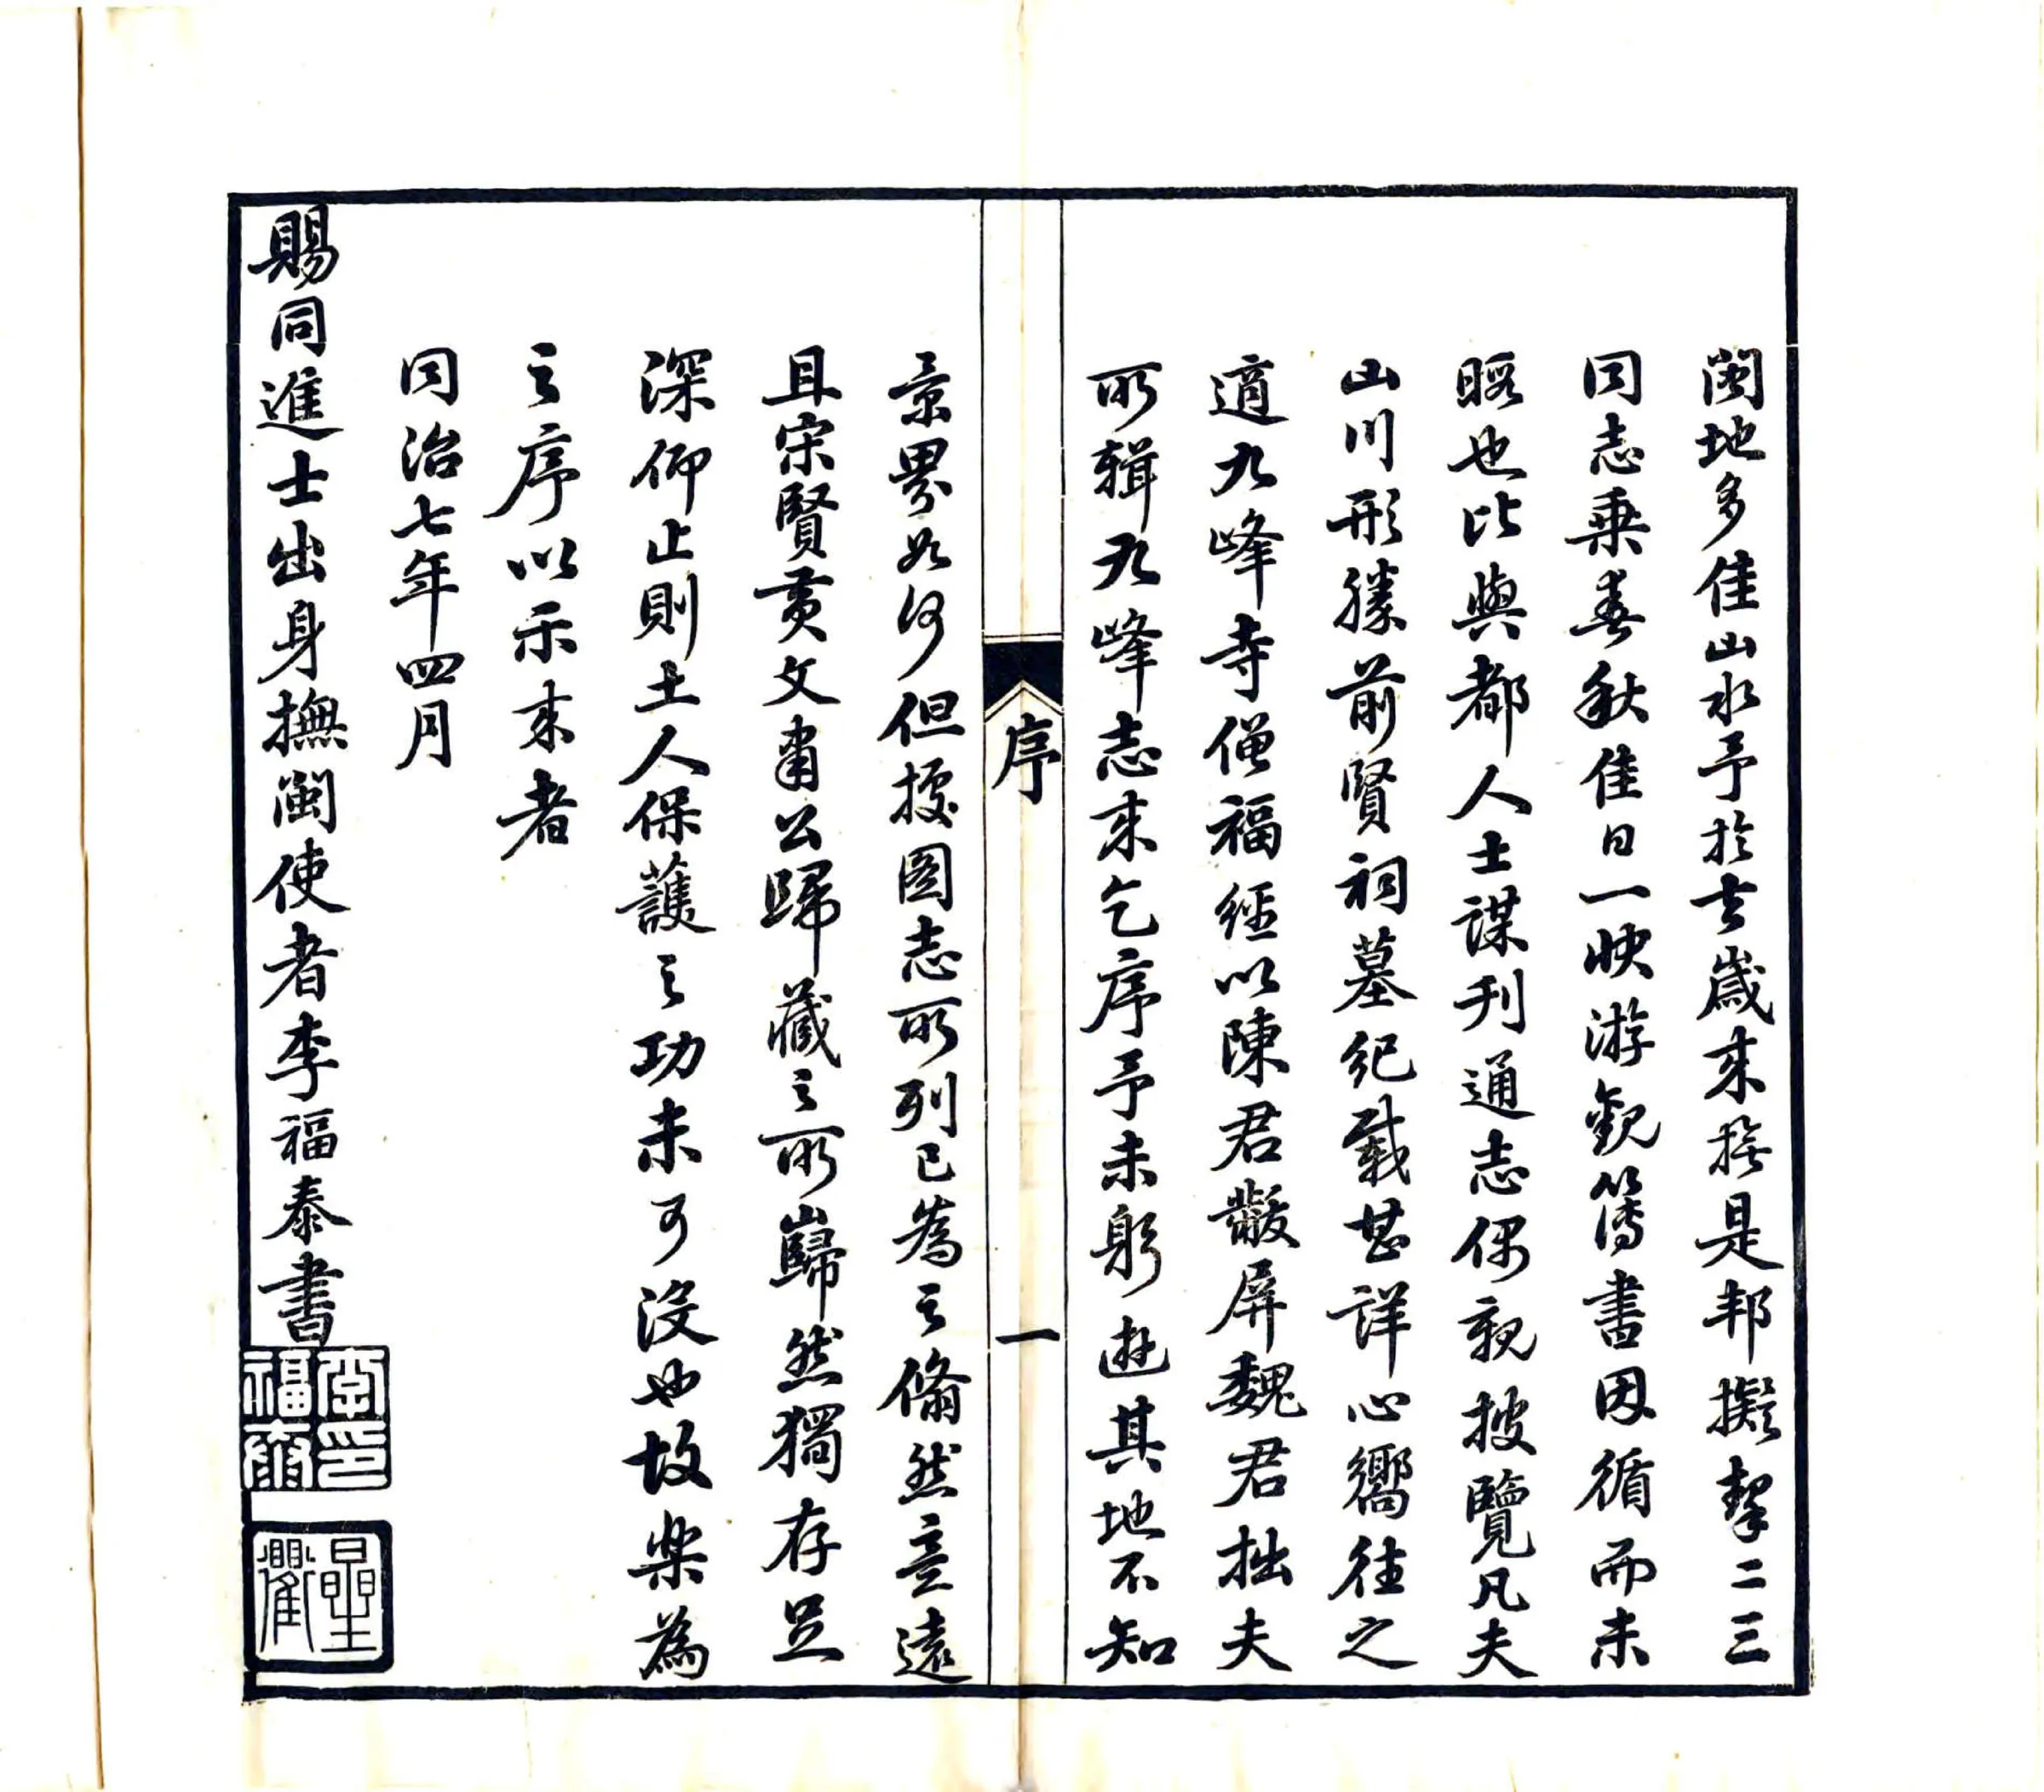 閩地多佳山水予於去歲來撫是邦擬挈二三
同志乘春秋佳日一快游觀簿書因循而未
暇也比與都人士謀刊通志偶親披覽凡夫
山川形勝前賢祠墓紀載甚詳心嚮往之
適九峰寺僧福經以陳君黻屏魏君拙夫
所輯九峰志來乞序予未躬遊其地不知
序
一
景界如何但據圖志所列已為之翛然意遠
且宋賢黃文肅公歸藏之所巋然獨存足
深仰止則土人保護之功未可沒也故樂為
之序以示來者
同治七年四月
賜同進士出身撫閩使者李福泰書
李福泰印
星衢